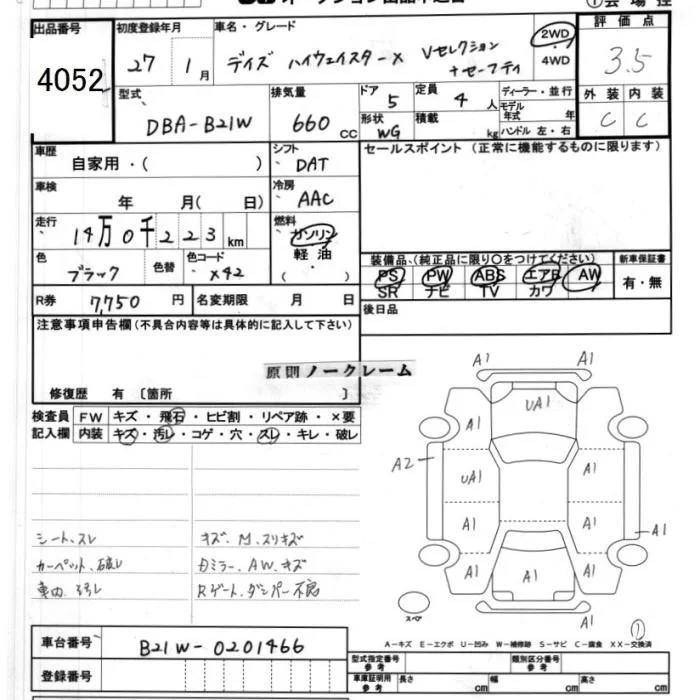 出品番号 初度登録年月 車名・グレード 評価点
4052 27 1月 デイズ ハイウェイスターX Vセレクション 2WD 3.5
+セーフティ 4WD
型式 排気量 ドア 5 定員 4人 ディーラー・並行 外装 内装
DBA-B21W 660cc 形状 WG 積載 kg モデル年式 年 C C
ハンドル 左・右
車歴 自家用・( ) シフト DAT セールスポイント (正常に機能するものに限ります)
車検 年 月( 日) 冷房 AAC
走行 14万0千223km 燃料 ガソリン
軽油
( ・ )
色 ブラック 色替 色コード X42 装備品、(純正品に限り〇をつけてください) 新車保証書
PS PW ABS エアB AW 有・無
SR ナビ TV カワ
R券 7,750円 名変期限 月 日 後日品
注意事項申告欄(不具合内容等は具体的に記入して下さい)
原則ノークレーム
修復歴 有〔箇所 〕
検査員 FW キズ・飛石・ヒビ割・リペア跡・×要
記入欄 内装 キズ・汚レ・コゲ・穴・スレ・キレ・破レ
シート、スレ キズ、M、スリキズ
カーペット、破レ Dミラー、AW、キズ
車内、ヨゴレ Rゲート、ダンパー不良
A1 A1
UA1
A1 A1
A2 UA1 A1
A1 A1 A1
A1 A1 A1
A1
スペア
①
A-キズ E-エクボ U-凹み W-補修跡 S-サビ C-腐食 XX-交換済
車台番号 B21W-0201466 型式指定番号 参考 類別区分番号 参考
登録番号 車庫証明用 参考 長さ cm 幅 cm 高さ cm